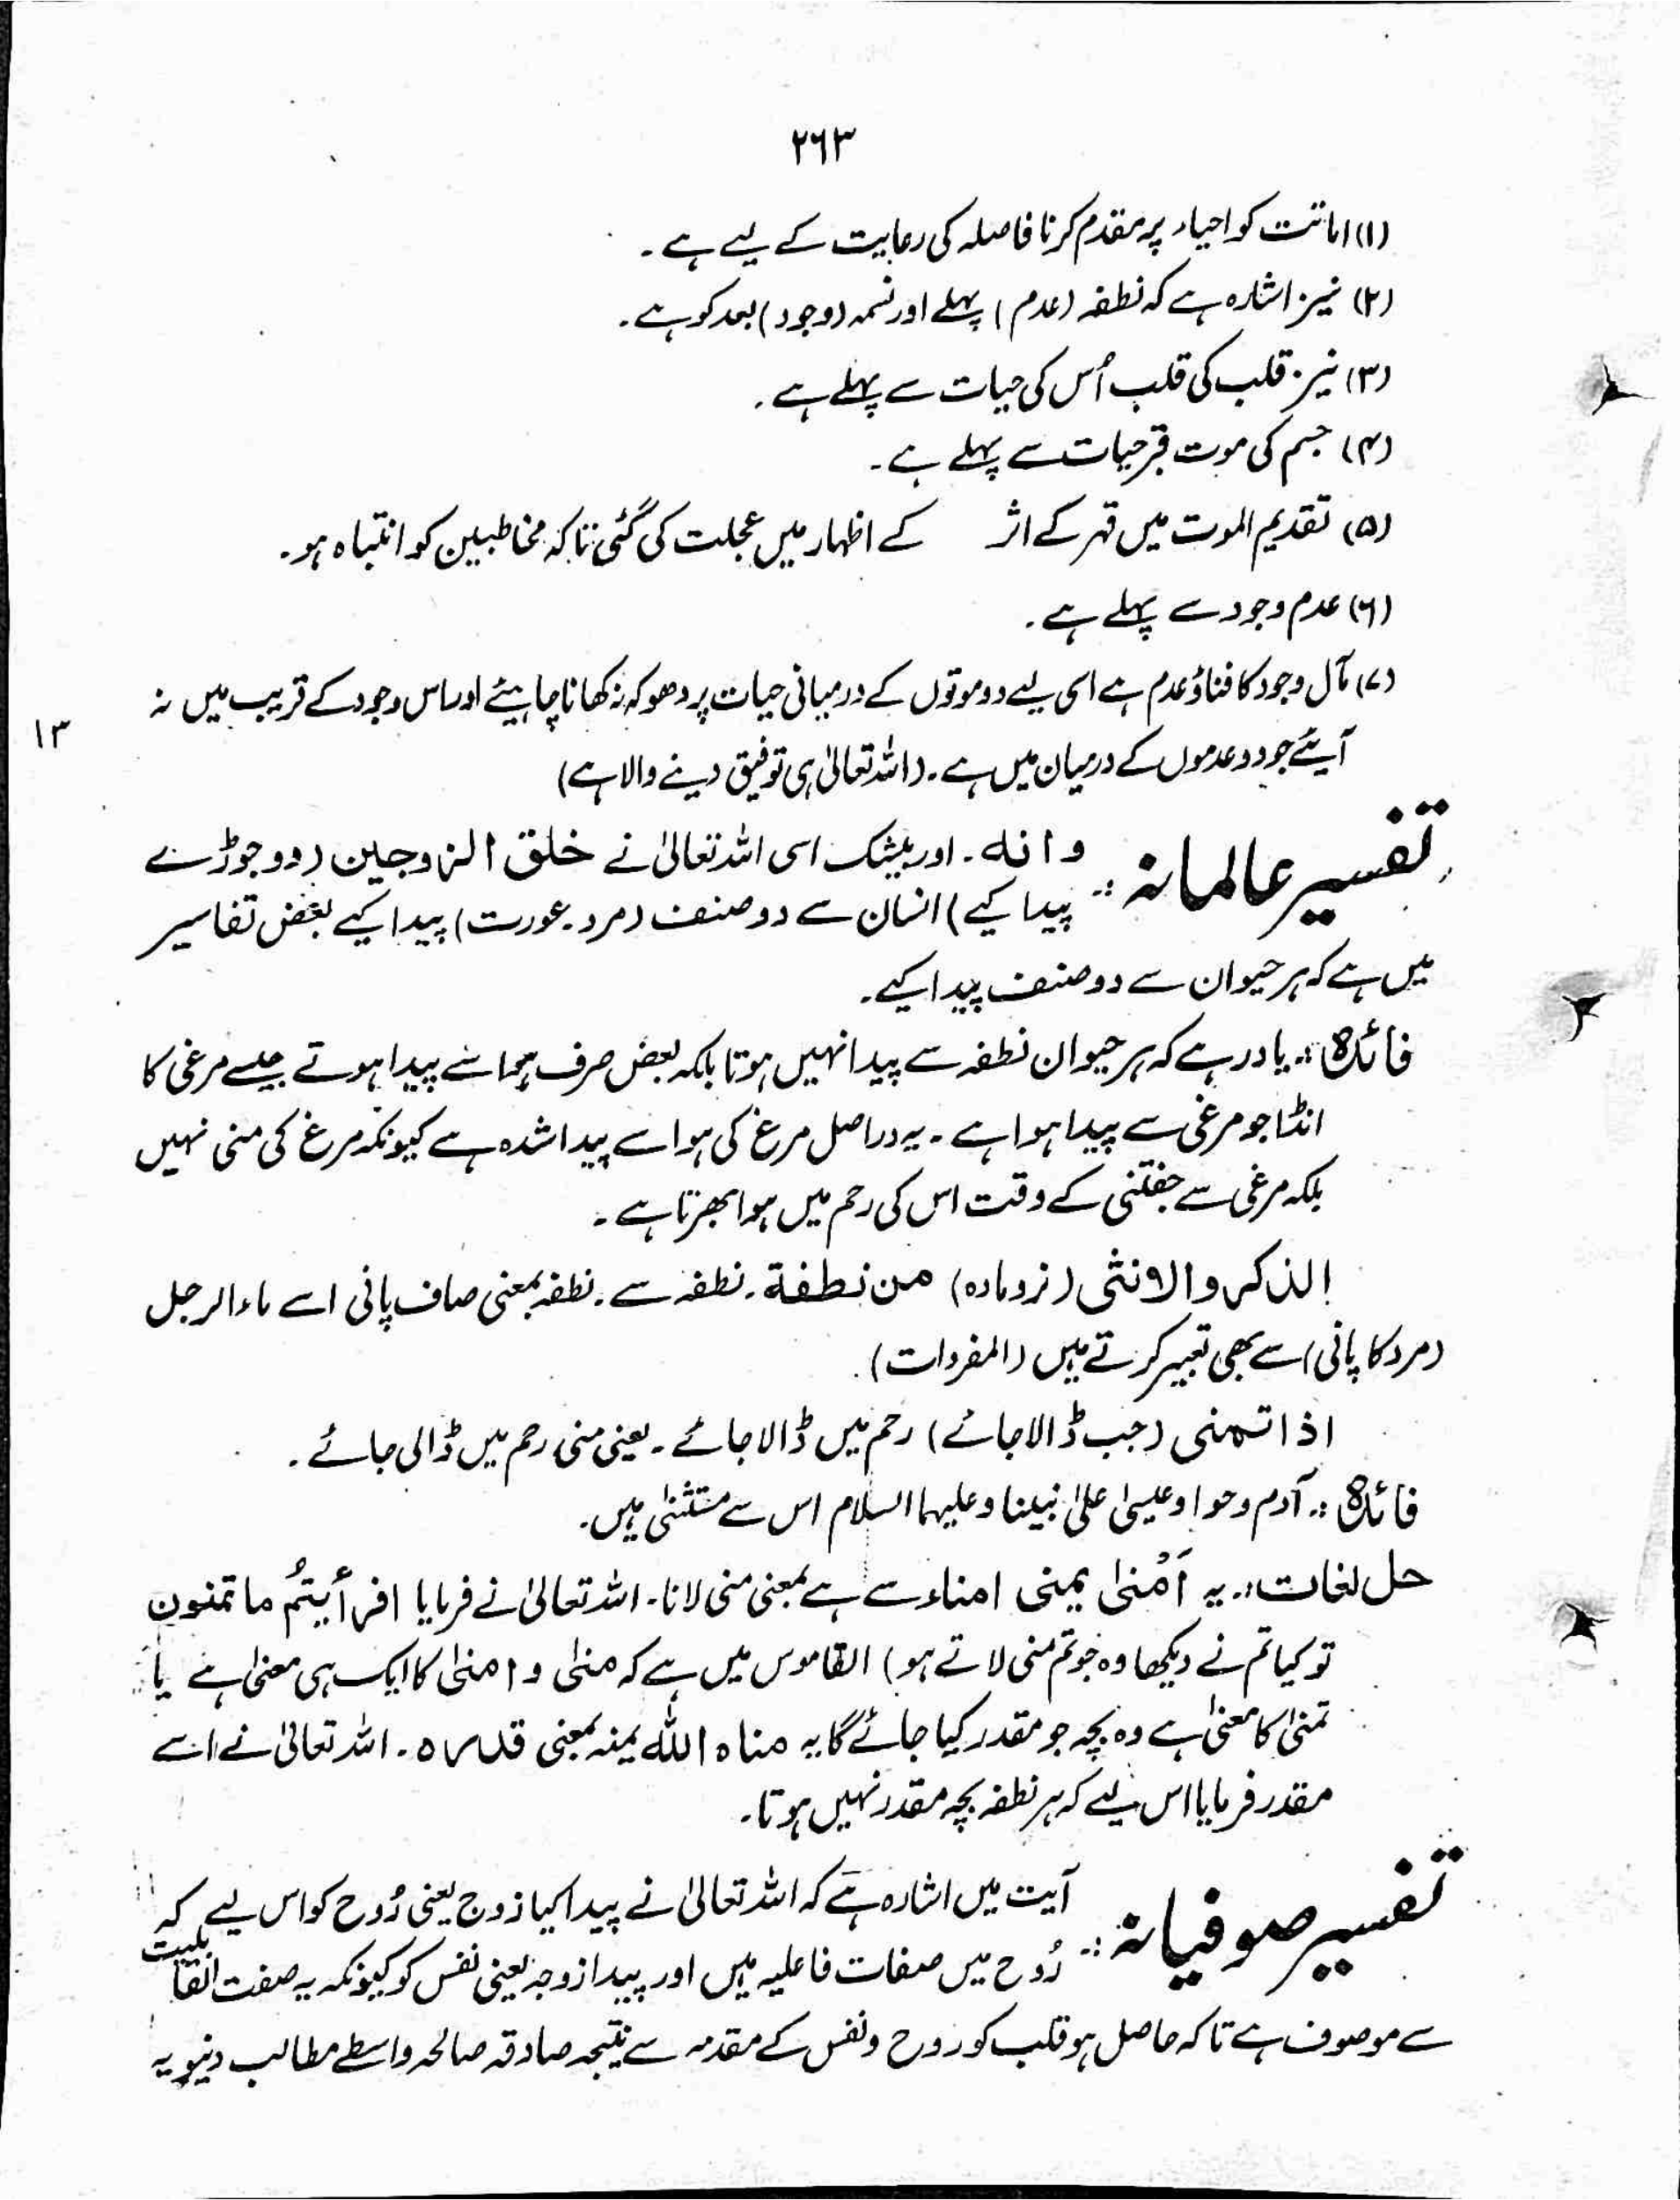 ۲۶۳
(۱) اماتت کو احیاء پر مقدم کرنا فاصلہ کی رعایت کے لیے ہے۔
(۲) نیز اشارہ ہے کہ نطفہ (عدم) پہلے اور نسمہ (وجود) بعد کو ہے۔
(۳) نیز قلب کی قلب اُس کی حیات سے پہلے ہے۔
(۴) جسم کی موت قبر حیات سے پہلے ہے۔
(۵) تقدیم الموت میں قہر کے اثر کے اظہار میں عجلت کی گئی تاکہ مخاطبین کو انتباہ ہو۔
(۶) عدم وجود سے پہلے ہے۔
(۷) مآل وجود کا فناؤ عدم ہے اسی لیے دو موتوں کے درمیانی حیات پر دھوکہ نہ کھانا چاہیئے اور اس وجود کے قریب میں نہ
۱۳
آیئے جو دو عدموں کے درمیان میں ہے۔ (اللہ تعالیٰ ہی توفیق دینے والا ہے)
تفسیر عالمانہ :۔ وانہ۔ اور بیشک اسی اللہ تعالیٰ نے خلق الزوجین (دو جوڑے
پیدا کیے) انسان سے دو صنف (مرد۔ عورت) پیدا کیے بعض تفاسیر
میں ہے کہ ہر حیوان سے دو صنف پیدا کیے۔
فائدہ :۔ یاد رہے کہ ہر حیوان نطفہ سے پیدا نہیں ہوتا بلکہ بعض صرف ہوا سے پیدا ہوتے جیسے مرغی کا
انڈا جو مرغی سے پیدا ہوا ہے۔ یہ دراصل مرغ کی ہوا سے پیدا شدہ ہے کیونکہ مرغ کی منی نہیں
بلکہ مرغی سے جفتنی کے وقت اس کی رحم میں ہوا بھرتا ہے۔
الذکر والانثی (نر و مادہ) من نطفة۔ نطفہ سے۔ نطفہ بمعنی صاف پانی اسے ماء الرجل
(مرد کا پانی) سے بھی تعبیر کرتے ہیں (المفردات)۔
اذا تمنی (جب ڈالا جائے) رحم میں ڈالا جائے۔ یعنی منی رحم میں ڈالی جائے۔
فائدہ :۔ آدم و حوا و عیسیٰ علیٰ نبینا و علیہما السلام اس سے مستثنیٰ ہیں۔
حل لغات :۔ یہ اَمْنٰی یمنی امناء سے ہے بمعنی منی لانا۔ اللہ تعالیٰ نے فرمایا افرأیتُم ما تمنون
تو کیا تم نے دیکھا وہ جو تم منی لاتے ہو) القاموس میں ہے کہ منٰی و امنٰی کا ایک ہی معنیٰ ہے یا
تمنیٰ کا معنیٰ ہے وہ بچہ جو مقدر کیا جائے گا یہ مناہ اللہ یمنہ بمعنی قدرہ۔ اللہ تعالیٰ نے اسے
مقدر فرمایا اس لیے کہ ہر نطفہ بچہ مقدر نہیں ہوتا۔
تفسیر صوفیانہ :۔ آیت میں اشارہ ہے کہ اللہ تعالیٰ نے پیدا کیا زوج یعنی رُوح کو اس لیے کہ
رُوح میں صفات فاعلیہ ہیں اور پیدا زوجہ یعنی نفس کو کیونکہ یہ صفت القابلیت
سے موصوف ہے تاکہ حاصل ہو قلب کو روح و نفس کے مقدمہ سے نتیجہ صادقہ صالحہ واسطے مطالب دنیویہ